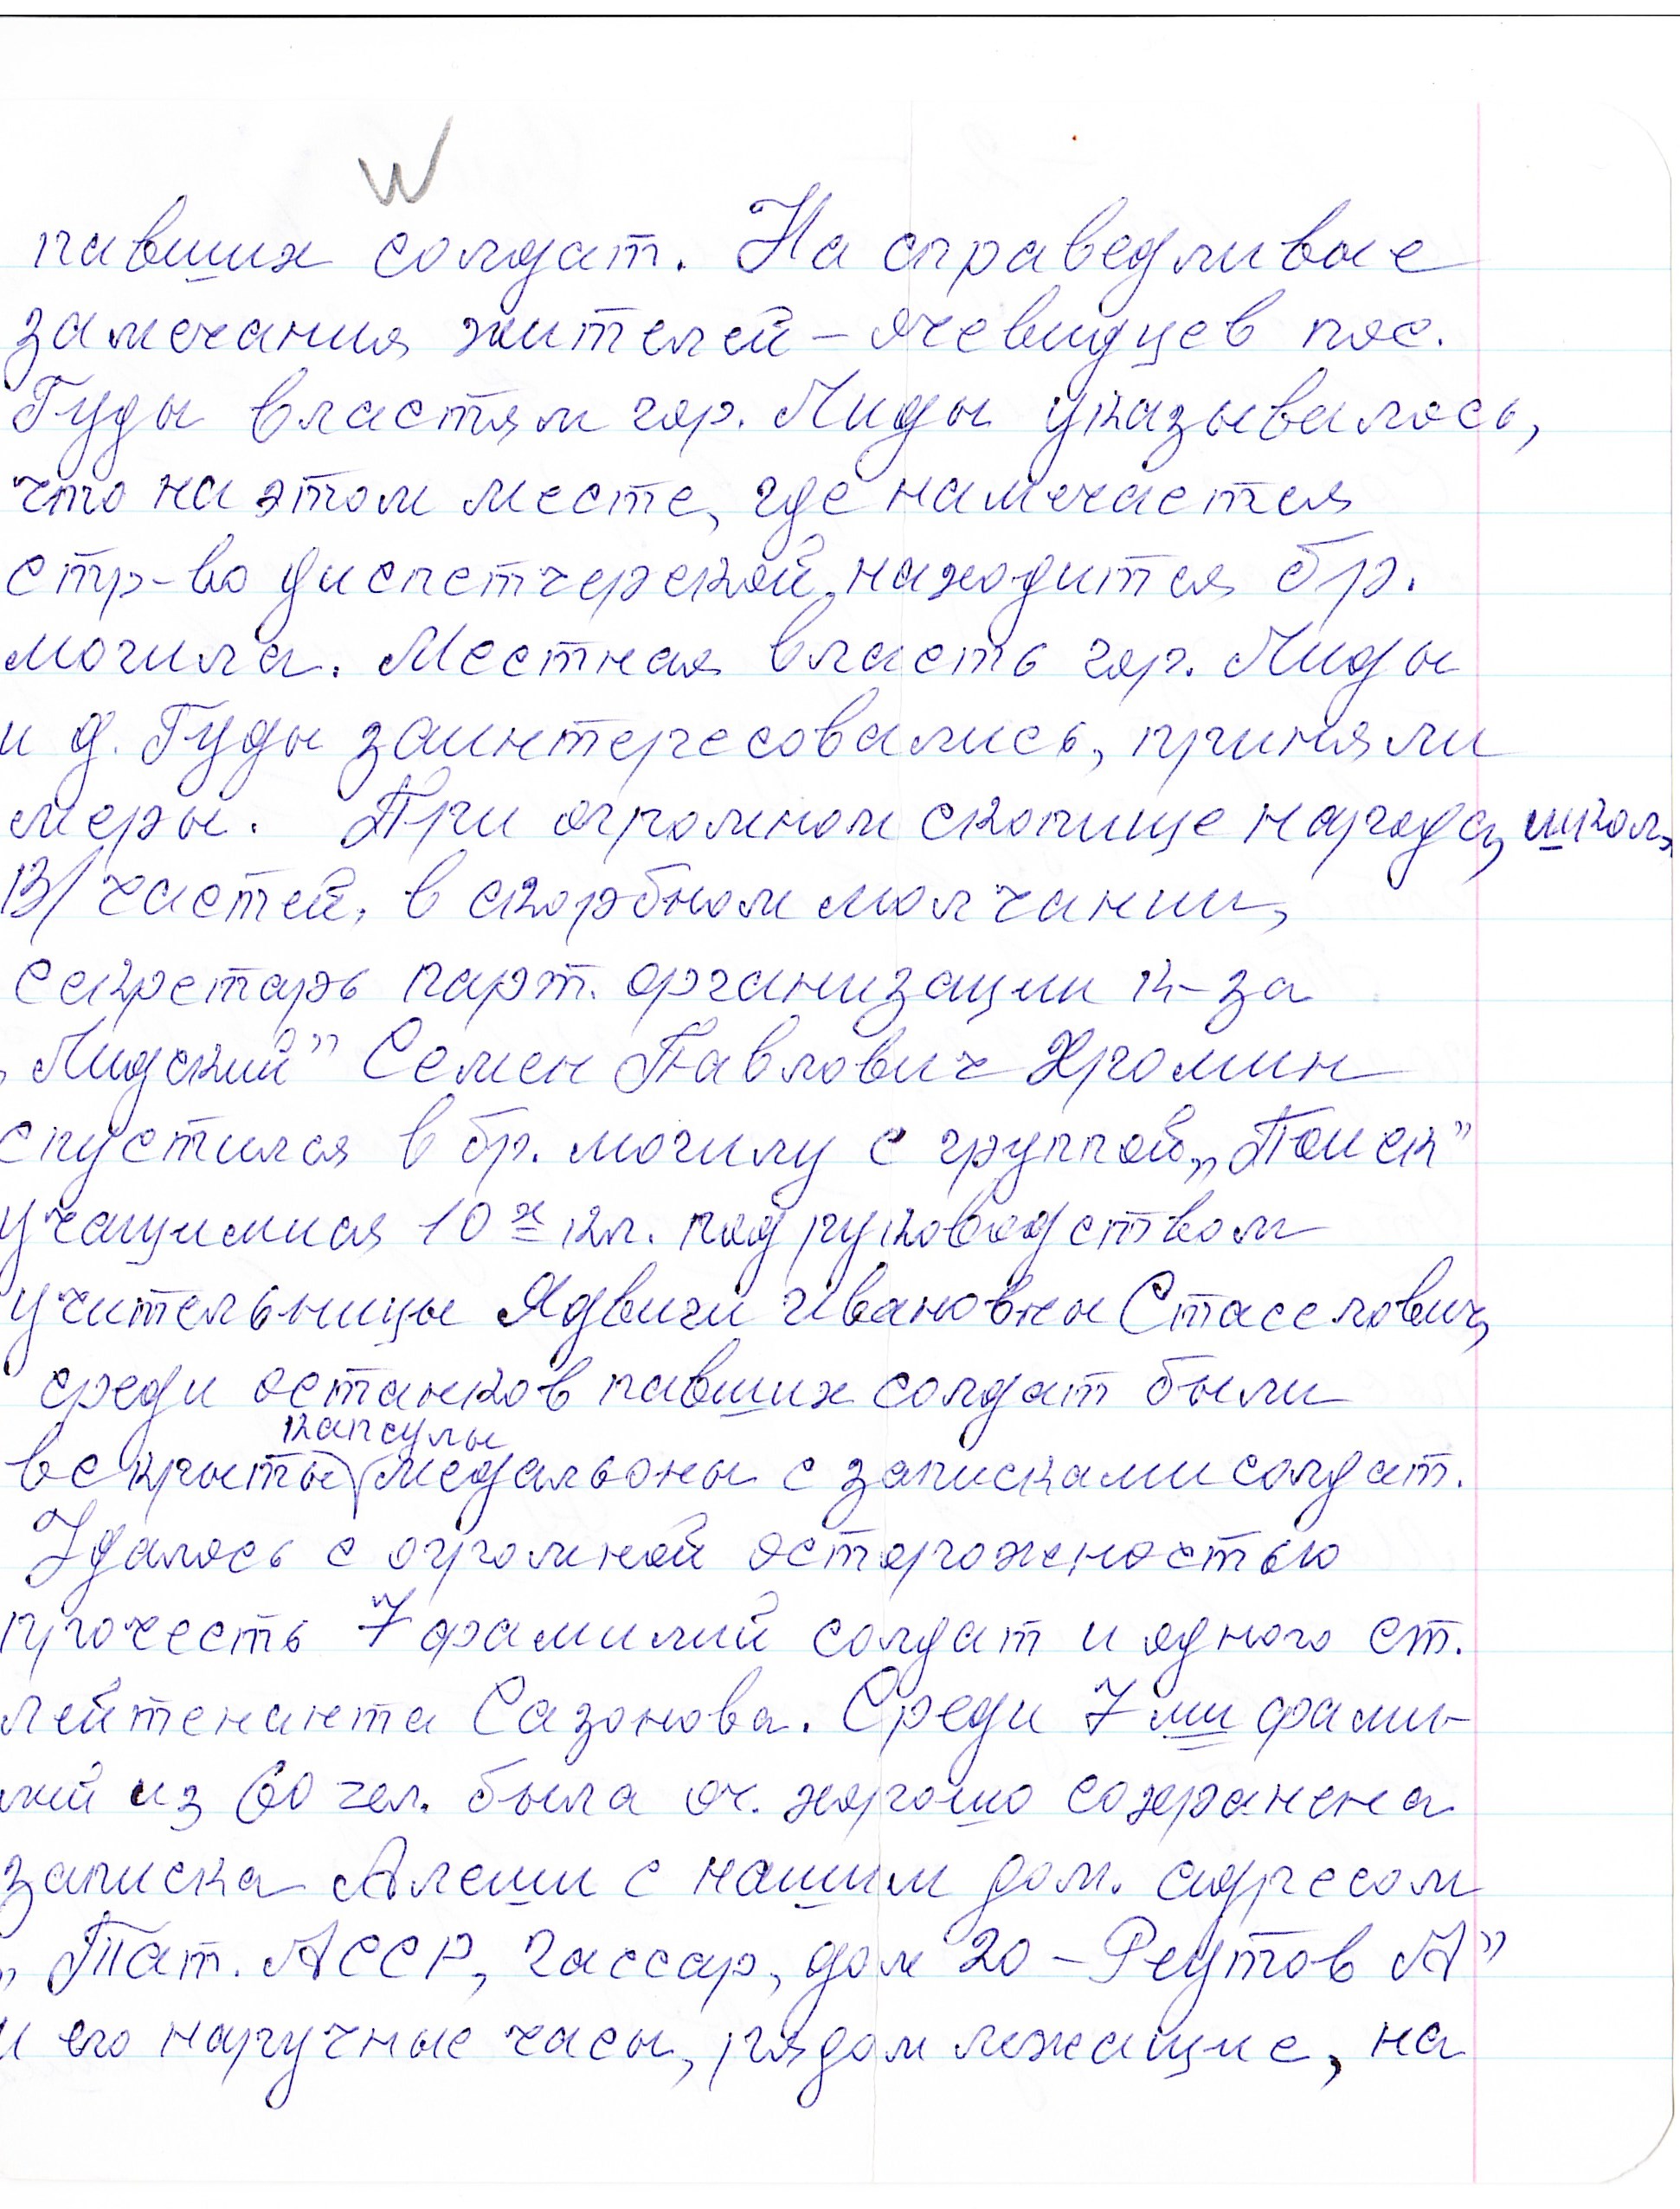 павших солдат. На справедливые
замечания жителей – очевидцев пос.
Гуды властям гор. Лиды указывалось,
что на этом месте, где намечается
стр-во диспетчерской, находится бр.
могила. Местная власть гор. Лиды
и д. Гуды заинтересовались, приняли
меры. При огромном скопище народа, школ,
В/частей, в скорбном молчании,
секретарь парт. организации к-за
„Лидский” Семен Павлович Хромин
спустился в бр. могилу с группой „Поиск”
учащимися 10х кл. под руководством
учительницы Ядвиги Ивановны Стаселович,
среди останков павших солдат были
капсулы
вскрыты медальоны с записками солдат.
Удалось с огромной осторожностью
прочесть 7 фамилий солдат и одного ст.
лейтенанта Сазонова. Среди 7ми фами-
лий из 60 чел. была оч. хорошо сохранена
записка Алеши с нашим дом. адресом
„Тат. АССР, Чассар, дом 20 – Реутов А”
и его наручные часы, рядом лежащие, на